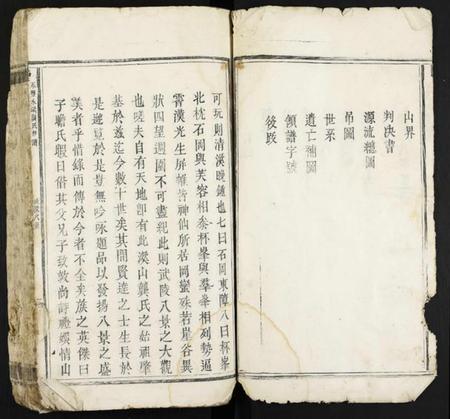 山界
判决書
源流總圖
吊圖
世系
遺亡總圖
領譜字號
後跋
可玩則清溪晚鐘也七曰石岡東障八曰杯峯
北枕石岡與芙容相泰杯峯與羣峯相列勢逼
霄漢光生屏幛皆神仙所居岡巒殊若岸谷異
狀四望週圍不可盡紀此則武陵八景之大觀
也嗟夫自有天地卽有此溪山龔氏之始祖肇
基於兹迄今數十世矣其間賢達之士生長於
是遊覧於是豈無吟咏題品以發揚八景之盛
美者乎惜緣而傳於今者不全矣族之英傑曰
子瞻氏暇日偕其父兄子敖敖尚詩禮娱情山